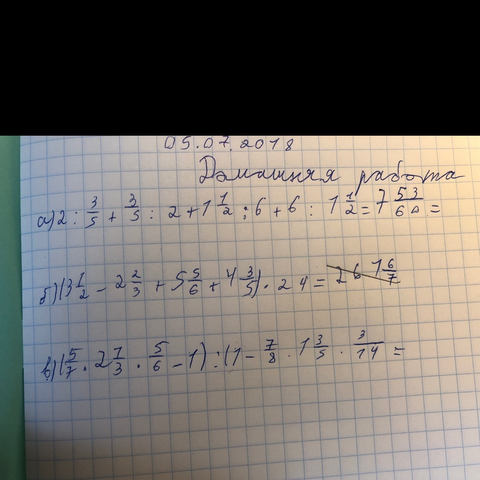 05.07.2018
Домашняя работа
а) 2 : 3/5 + 3/5 : 2 + 1 1/2 : 6 + 6 : 1 1/2 = 7 53/60 =
б) (3 1/2 - 2 2/3 + 5 5/6 + 4 3/5) · 24 = 26 1 6/7
в) (5/7 · 2 1/3 · 5/6 - 1) : (1 - 7/8 · 1 3/5 · 3/14 =